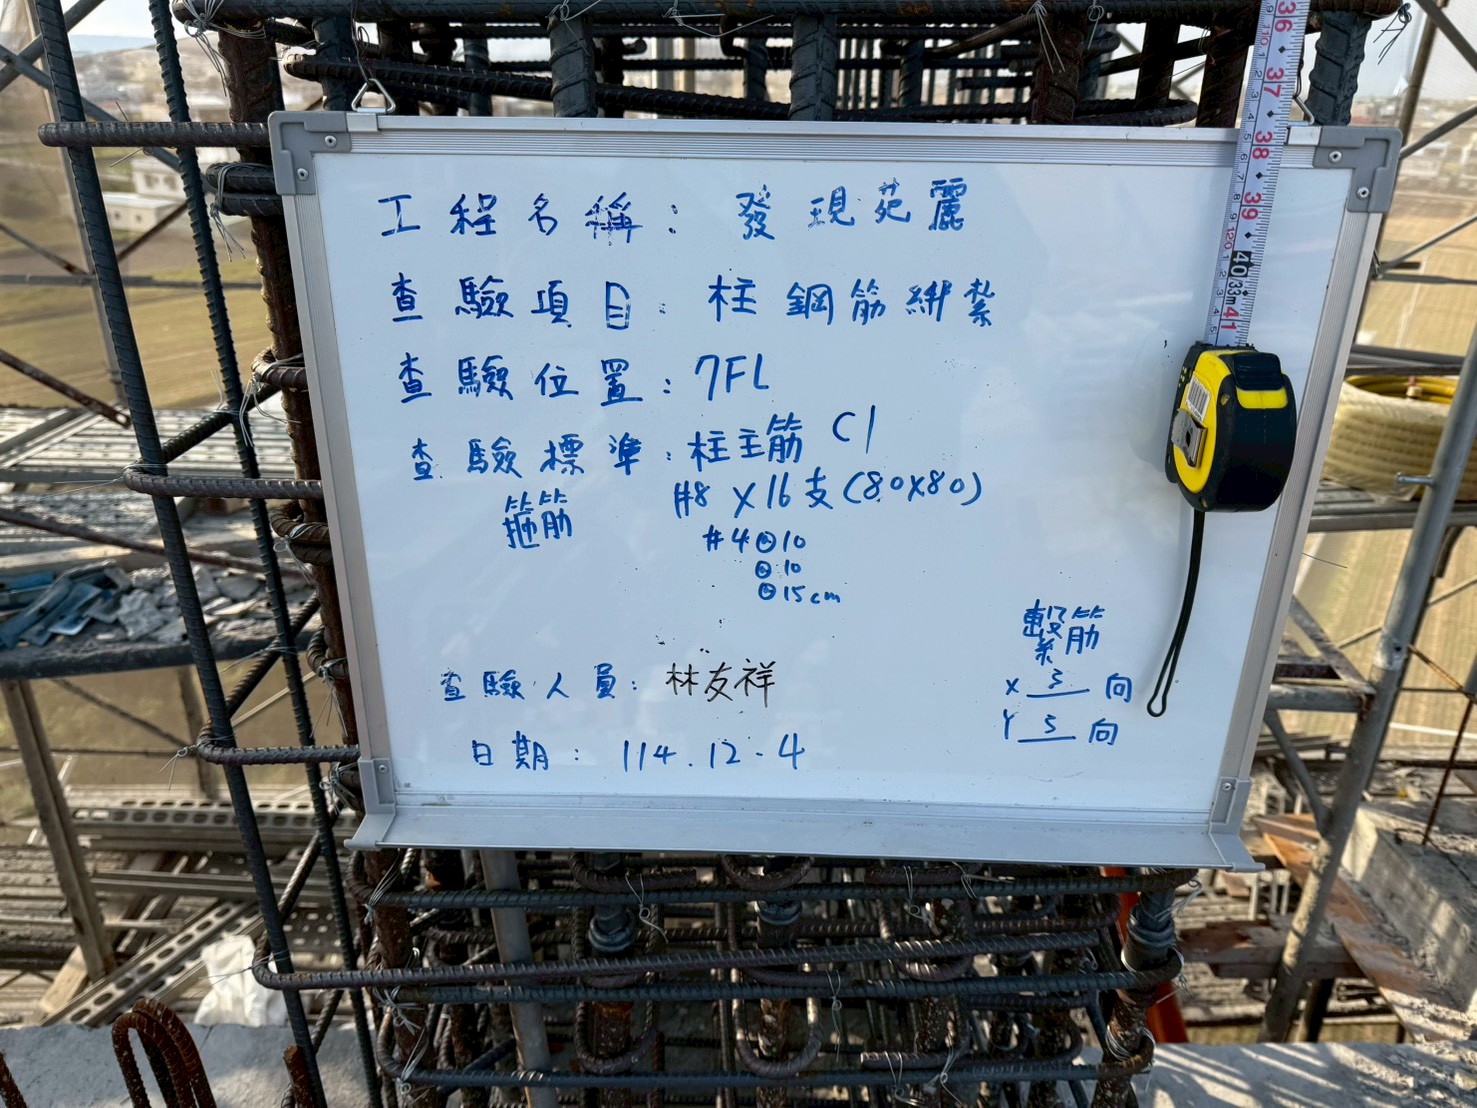 工程名稱：發現苑麗
查驗項目：柱鋼筋綁紮
查驗位置：7FL
查驗標準：柱主筋 C1
#8 x 16支(80x80)
箍筋
#4@10
@10
@15cm
繫筋
x 3 向
Y 3 向
查驗人員：林友祥
日期：114.12-4
36
37
38
39
40
33m
41